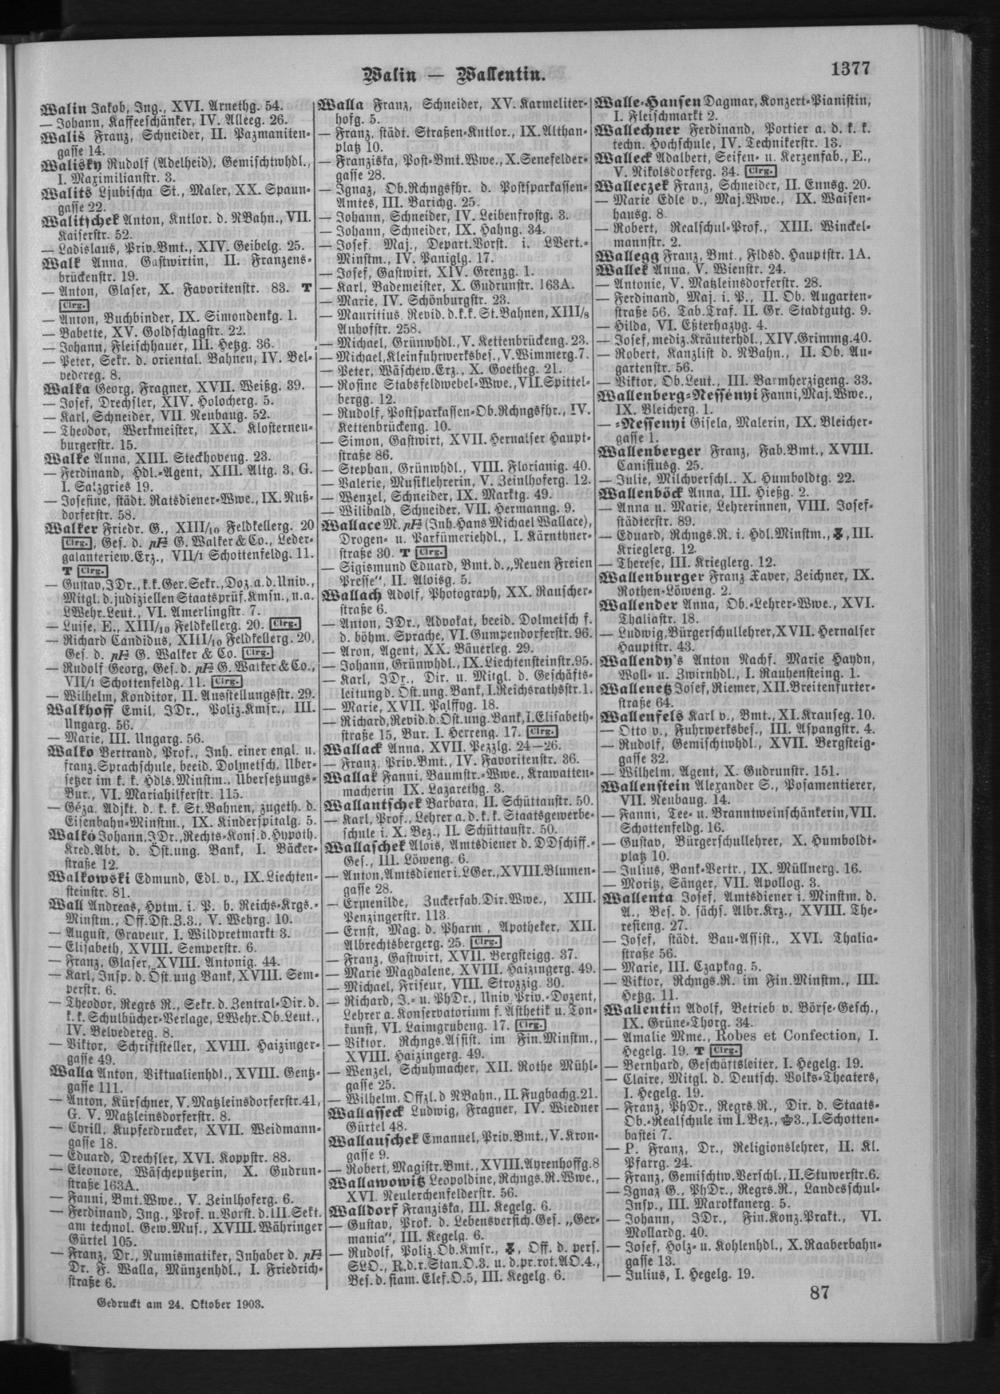 Walin — Wallentin.
1377
Walin Jakob, Ing., XVI. Arnethg. 54.
— Johann, Kaffeeschänker, IV. Alleeg. 26.
Walis Franz, Schneider, II. Pazmaniten-
gasse 14.
Walisky Rudolf (Adelheid), Gemischtwhdl.,
I. Maximilianstr. 3.
Walits Ljubischa St., Maler, XX. Spaun-
gasse 22.
Walitschek Anton, Kntlor. d. NBahn., VII.
Kaiserstr. 52.
— Ladislaus, Priv.Bmt., XIV. Geibelg. 25.
Walk Anna, Gastwirtin, II. Franzens-
brückenstr. 19.
— Anton, Glaser, X. Favoritenstr. 83. T
Clrg.
— Anton, Buchbinder, IX. Simondenkg. 1.
— Babette, XV. Goldschlagstr. 22.
— Johann, Fleischhauer, III. Hetzg. 36.
— Peter, Sekr. d. oriental. Bahnen, IV. Bel-
vedereg. 8.
Walka Georg, Fragner, XVII. Weißg. 39.
— Josef, Drechsler, XIV. Holocherg. 5.
— Karl, Schneider, VII. Neubaug. 52.
— Theodor, Werkmeister, XX. Klosterneu-
burgerstr. 15.
Walke Anna, XIII. Steckhoveng. 23.
— Ferdinand, Hdl.-Agent, XIII. Altg. 3, G.
I. Salzgries 19.
— Josefine, städt. Ratsdiener-Wwe., IX. Nuß-
dorferstr. 58.
Walker Friedr. G., XIII/10 Feldkellerg. 20
Clrg., Ges. d. G. Walker & Co., Leder-
galanteriew.Erz., VII/1 Schottenfeldg. 11.
T Clrg.
— Gustav, JDr., k.k. Ger. Sekr., Doz. a. d. Univ.,
Mitgl. d. judiziellen Staatsprüf. Kmsn., n.a.
LWehr. Leut., VI. Amerlingstr. 7.
— Luise, E., XIII/10 Feldkellerg. 20. Clrg.
— Richard Candidus, XIII/10 Feldkellerg. 20,
Ges. d. G. Walker & Co. Clrg.
— Rudolf Georg, Ges. d. G. Walker & Co.,
VII/1 Schottenfeldg. 11. Clrg.
— Wilhelm, Konditor, II. Ausstellungsstr. 29.
Walkhoff Emil, JDr., Poliz.Kmsr., III.
Ungarg. 56.
— Marie, III. Ungarg. 56.
Walko Bertrand, Prof., Inh. einer engl. u.
franz. Sprachschule, beeid. Dolmetsch, Über-
setzer im k. k. Hdls.Minstm., Übersetzungs-
Bur., VI. Mariahilferstr. 115.
— Géza, Adjkt. d. k. k. St.Bahnen, zugeth. d.
Eisenbahn-Minstm., IX. Kinderspitalg. 5.
Walkó Johann, JDr., Rechts-Kons. d. Hypoth.
Kred.Abt. d. Öst.ung. Bank, I. Bäcker-
straße 12.
Walkowski Edmund, Edl. v., IX. Liechten-
steinstr. 81.
Wall Andreas, Hptm. i. P. b. Reichs-Krgs.-
Minstm., Off.Dst.Z.3., V. Wehrg. 10.
— August, Graveur, I. Wildpretmarkt 3.
— Elisabeth, XVIII. Semperstr. 6.
— Franz, Glaser, XVIII. Antonig. 44.
— Karl, Insp. d. Öst.ung Bank, XVIII. Sem-
perstr. 6.
— Theodor, Regrs R., Sekr. d. Zentral-Dir. d.
k. k. Schulbücher-Verlage, LWehr.Ob.Leut.,
IV. Belvedereg. 8.
— Viktor, Schriftsteller, XVIII. Haizinger-
gasse 49.
Walla Anton, Viktualienhdl., XVIII. Gentz-
gasse 111.
— Anton, Kürschner, V. Matzleinsdorferstr. 41,
G. V. Matzleinsdorferstr. 8.
— Cyrill, Kupferdrucker, XVII. Weidmann-
gasse 18.
— Eduard, Drechsler, XVI. Koppstr. 88.
— Eleonore, Wäscheputzerin, X. Gudrun-
straße 163A.
— Fanni, Bmt.Wwe., V. Zeinlhoferg. 6.
— Ferdinand, Ing., Prof. u. Vorst. d. III. Sekt.
am technol. Gew.Mus., XVIII. Währinger
Gürtel 105.
— Franz, Dr., Numismatiker, Inhaber d.
Dr. F. Walla, Münzenhdl., I. Friedrich-
straße 6.
Walla Franz, Schneider, XV. Karmeliter-
hofg. 5.
— Franz, städt. Straßen-Kntlor., IX. Althan-
platz 10.
— Franziska, Post-Bmt.Wwe., X. Senefelder-
gasse 28.
— Ignaz, Ob.Rchngsfhr. d. Postsparkassen-
Amtes, III. Barichg. 25.
— Johann, Schneider, IV. Leibenfrostg. 3.
— Johann, Schneider, IX. Hahng. 34.
— Josef, Maj., Depart.Vorst. i. LVert.-
Minstm., IV. Paniglg. 17.
— Josef, Gastwirt, XIV. Grenzg. 1.
— Karl, Bademeister, X. Gudrunstr. 163A.
— Marie, IV. Schönburgstr. 23.
— Mauritius, Revid. d. k. k. St.Bahnen, XIII/3
Anhofstr. 258.
— Michael, Grünwhdl., V. Kettenbrückeng. 23.
— Michael, Kleinfuhrwerksbes., V. Wimmerg. 7.
— Peter, Wäschew.Erz., X. Goetheg. 21.
— Rosine Stabsfeldwebel-Wwe., VII. Spittel-
bergg. 12.
— Rudolf, Postsparkassen-Ob.Rchngsfhr., IV.
Kettenbrückeng. 10.
— Simon, Gastwirt, XVII. Hernalser Haupt-
straße 86.
— Stephan, Grünwhdl., VIII. Florianig. 40.
— Valerie, Musiklehrerin, V. Zeinlhoferg. 12.
— Wenzel, Schneider, IX. Marktg. 49.
— Wilibald, Schneider, VII. Hermanng. 9.
Wallace M. (Inh. Hans Michael Wallace),
Drogen- u. Parfümeriehdl., I. Kärnthner-
straße 30. T Clrg.
— Sigismund Eduard, Bmt. d. „Neuen Freien
Presse“, II. Aloisg. 5.
Wallach Adolf, Photograph, XX. Rauscher-
straße 6.
— Anton, JDr., Advokat, beeid. Dolmetsch f.
d. böhm. Sprache, VI. Gumpendorferstr. 96.
— Aron, Agent, XX. Bäuerleg. 29.
— Johann, Grünwhdl., IX. Liechtensteinstr. 95.
— Karl, JDr., Dir. u. Mitgl. d. Geschäfts-
leitung d. Öst.ung. Bank, I. Reichsrathsstr. 1.
— Marie, XVII. Palffyg. 18.
— Richard, Revid. d. Öst.ung. Bank, I. Elisabeth-
straße 15, Bur. I. Herreng. 17. Clrg.
Wallack Anna, XVII. Pezzlg. 24—26.
— Franz, Priv.Bmt., IV. Favoritenstr. 36.
Wallak Fanni, Baumstr.-Wwe., Krawatten-
macherin IX. Lazarethg. 3.
Wallantschek Barbara, II. Schüttaustr. 50.
— Karl, Prof., Lehrer a. d. k. k. Staatsgewerbe-
schule i. X. Bez., II. Schüttaustr. 50.
Wallaschek Alois, Amtsdiener d. DDschiff.-
Ges., III. Löweng. 6.
— Anton, Amtsdiener i. LGer., XVIII. Blumen-
gasse 28.
— Ermenilde, Zuckerfab.Dir.Wwe., XIII.
Penzingerstr. 113.
— Ernst, Mag. d. Pharm., Apotheker, XII.
Albrechtsbergerg. 25. Clrg.
— Franz, Gastwirt, XVII. Bergsteigg. 37.
— Marie Magdalene, XVIII. Haizingerg. 49.
— Michael, Friseur, VIII. Strozzig. 30.
— Richard, J.- u. PhDr., Univ Priv.-Dozent,
Lehrer a. Konservatorium f. Ästhetik u. Ton-
kunst, VI. Laimgrubeng. 17. Clrg.
— Viktor, Rchngs.Assist. im Fin.Minstm.,
XVIII. Haizingerg. 49.
— Wenzel, Schuhmacher, XII. Rothe Mühl-
gasse 25.
— Wilhelm, Offzl. d NBahn., II. Fugbachg. 21.
Wallasseck Ludwig, Fragner, IV. Wiedner
Gürtel 48.
Wallauschek Emanuel, Priv.Bmt., V. Kron-
gasse 9.
— Robert, Magistr.Bmt., XVIII. Ayrenhoffg. 8
Wallawowitz Leopoldine, Rchngs.R.Wwe.,
XVI. Neulerchenfelderstr. 56.
Walldorf Franziska, III. Kegelg. 6.
— Gustav, Prok. d. Lebensversich.Ges. „Ger-
mania“, III. Kegelg. 6.
— Rudolf, Poliz.Ob.Kmsr., Off. d. pers.
SLO., R.d.r.Stan.O.3. u. d.pr.rot.AO.4.,
Bes. d. siam. Elef.O.5, III. Kegelg. 6.
Walle-Hansen Dagmar, Konzert-Pianistin,
I. Fleischmarkt 2.
Wallechner Ferdinand, Portier a. d. k. k.
techn. Hochschule, IV. Technikerstr. 13.
Walleck Adalbert, Seifen- u. Kerzenfab., E.,
V. Nikolsdorferg. 34. Clrg.
Walleczek Franz, Schneider, II. Ennsg. 20.
— Marie Edle v., Maj.Wwe., IX. Waisen-
hausg. 8.
— Robert, Realschul-Prof., XIII. Winckel-
mannstr. 2.
Wallegg Franz, Bmt., Fldsd. Hauptstr. 1A.
Wallek Anna, V. Wienstr. 24.
— Antonie, V. Matzleinsdorferstr. 28.
— Ferdinand, Maj. i. P., II. Ob. Augarten-
straße 56, Tab.Traf. II. Gr. Stadtgutg. 9.
— Hilda, VI. Eßterhazyg. 4.
— Josef, mediz. Kräuterhdl., XIV. Grimmg. 40.
— Robert, Kanzlist d. NBahn., II. Ob. Au-
gartenstr. 56.
— Viktor, Ob.Leut., III. Barmherzigeng. 33.
Wallenberg-Nessényi Fanni, Maj.Wwe.,
IX. Bleicherg. 1.
— -Nessenyi Gisela, Malerin, IX. Bleicher-
gasse 1.
Wallenberger Franz, Fab.Bmt., XVIII.
Canisiusg. 25.
— Julie, Milchverschl., X. Humboldtg. 22.
Wallenböck Anna, III. Hießg. 2.
— Anna u. Marie, Lehrerinnen, VIII. Josef-
städterstr. 89.
— Eduard, Rchngs.R. i. Hdl.Minstm., III.
Krieglerg. 12.
— Therese, III. Krieglerg. 12.
Wallenburger Franz Xaver, Zeichner, IX.
Rothen-Löweng. 2.
Wallender Anna, Ob.-Lehrer-Wwe., XVI.
Thaliastr. 18.
— Ludwig, Bürgerschullehrer, XVII. Hernalser
Hauptstr. 43.
Wallendy's Anton Nachf. Marie Haydn,
Woll- u. Zwirnhdl., I. Rauhensteing. 1.
Wallenetz Josef, Riemer, XII. Breitenfurter-
straße 64.
Wallenfels Karl v., Bmt., XI. Krauseg. 10.
— Otto v., Fuhrwerksbes., III. Aspangstr. 4.
— Rudolf, Gemischtwhdl., XVII. Bergsteig-
gasse 32.
— Wilhelm, Agent, X. Gudrunstr. 151.
Wallenstein Alexander S., Posamentierer,
VII. Neubaug. 14.
— Fanni, Tee- u. Branntweinschänkerin, VII.
Schottenfeldg. 16.
— Gustav, Bürgerschullehrer, X. Humboldt-
platz 10.
— Julius, Bank-Vertr., IX. Müllnerg. 16.
— Moritz, Sänger, VII. Apollog. 3.
Wallenta Josef, Amtsdiener i. Minstm. d.
A., Bes. d. sächs. Albr.Krz., XVIII. The-
resieng. 27.
— Josef, städt. Bau-Assist., XVI. Thalia-
straße 56.
— Marie, III. Czapkag. 5.
— Viktor, Rchngs.R. im Fin.Minstm., III.
Hetzg. 11.
Wallentin Adolf, Betrieb v. Börse-Gesch.,
IX. Grüne-Thorg. 34.
— Amalie Mme., Robes et Confection, I.
Hegelg. 19. T Clrg.
— Bernhard, Geschäftsleiter, I. Hegelg. 19.
— Claire, Mitgl. d. Deutsch. Volks-Theaters,
I. Hegelg. 19.
— Franz, PhDr., Regrs.R., Dir. d. Staats-
Ob.-Realschule im I. Bez., 3., I. Schotten-
bastei 7.
— P. Franz, Dr., Religionslehrer, II. Kl.
Pfarrg. 24.
— Franz, Gemischtw.Verschl., II. Stuwerstr. 6.
— Ignaz G., PhDr., Regrs.R., Landesschul-
Insp., III. Marokkanerg. 5.
— Johann, JDr., Fin.Konz.Prakt., VI.
Mollardg. 40.
— Josef, Holz- u. Kohlenhdl., X. Raaberbahn-
gasse 13.
— Julius, I. Hegelg. 19.
Gedruckt am 24. Oktober 1903.
87